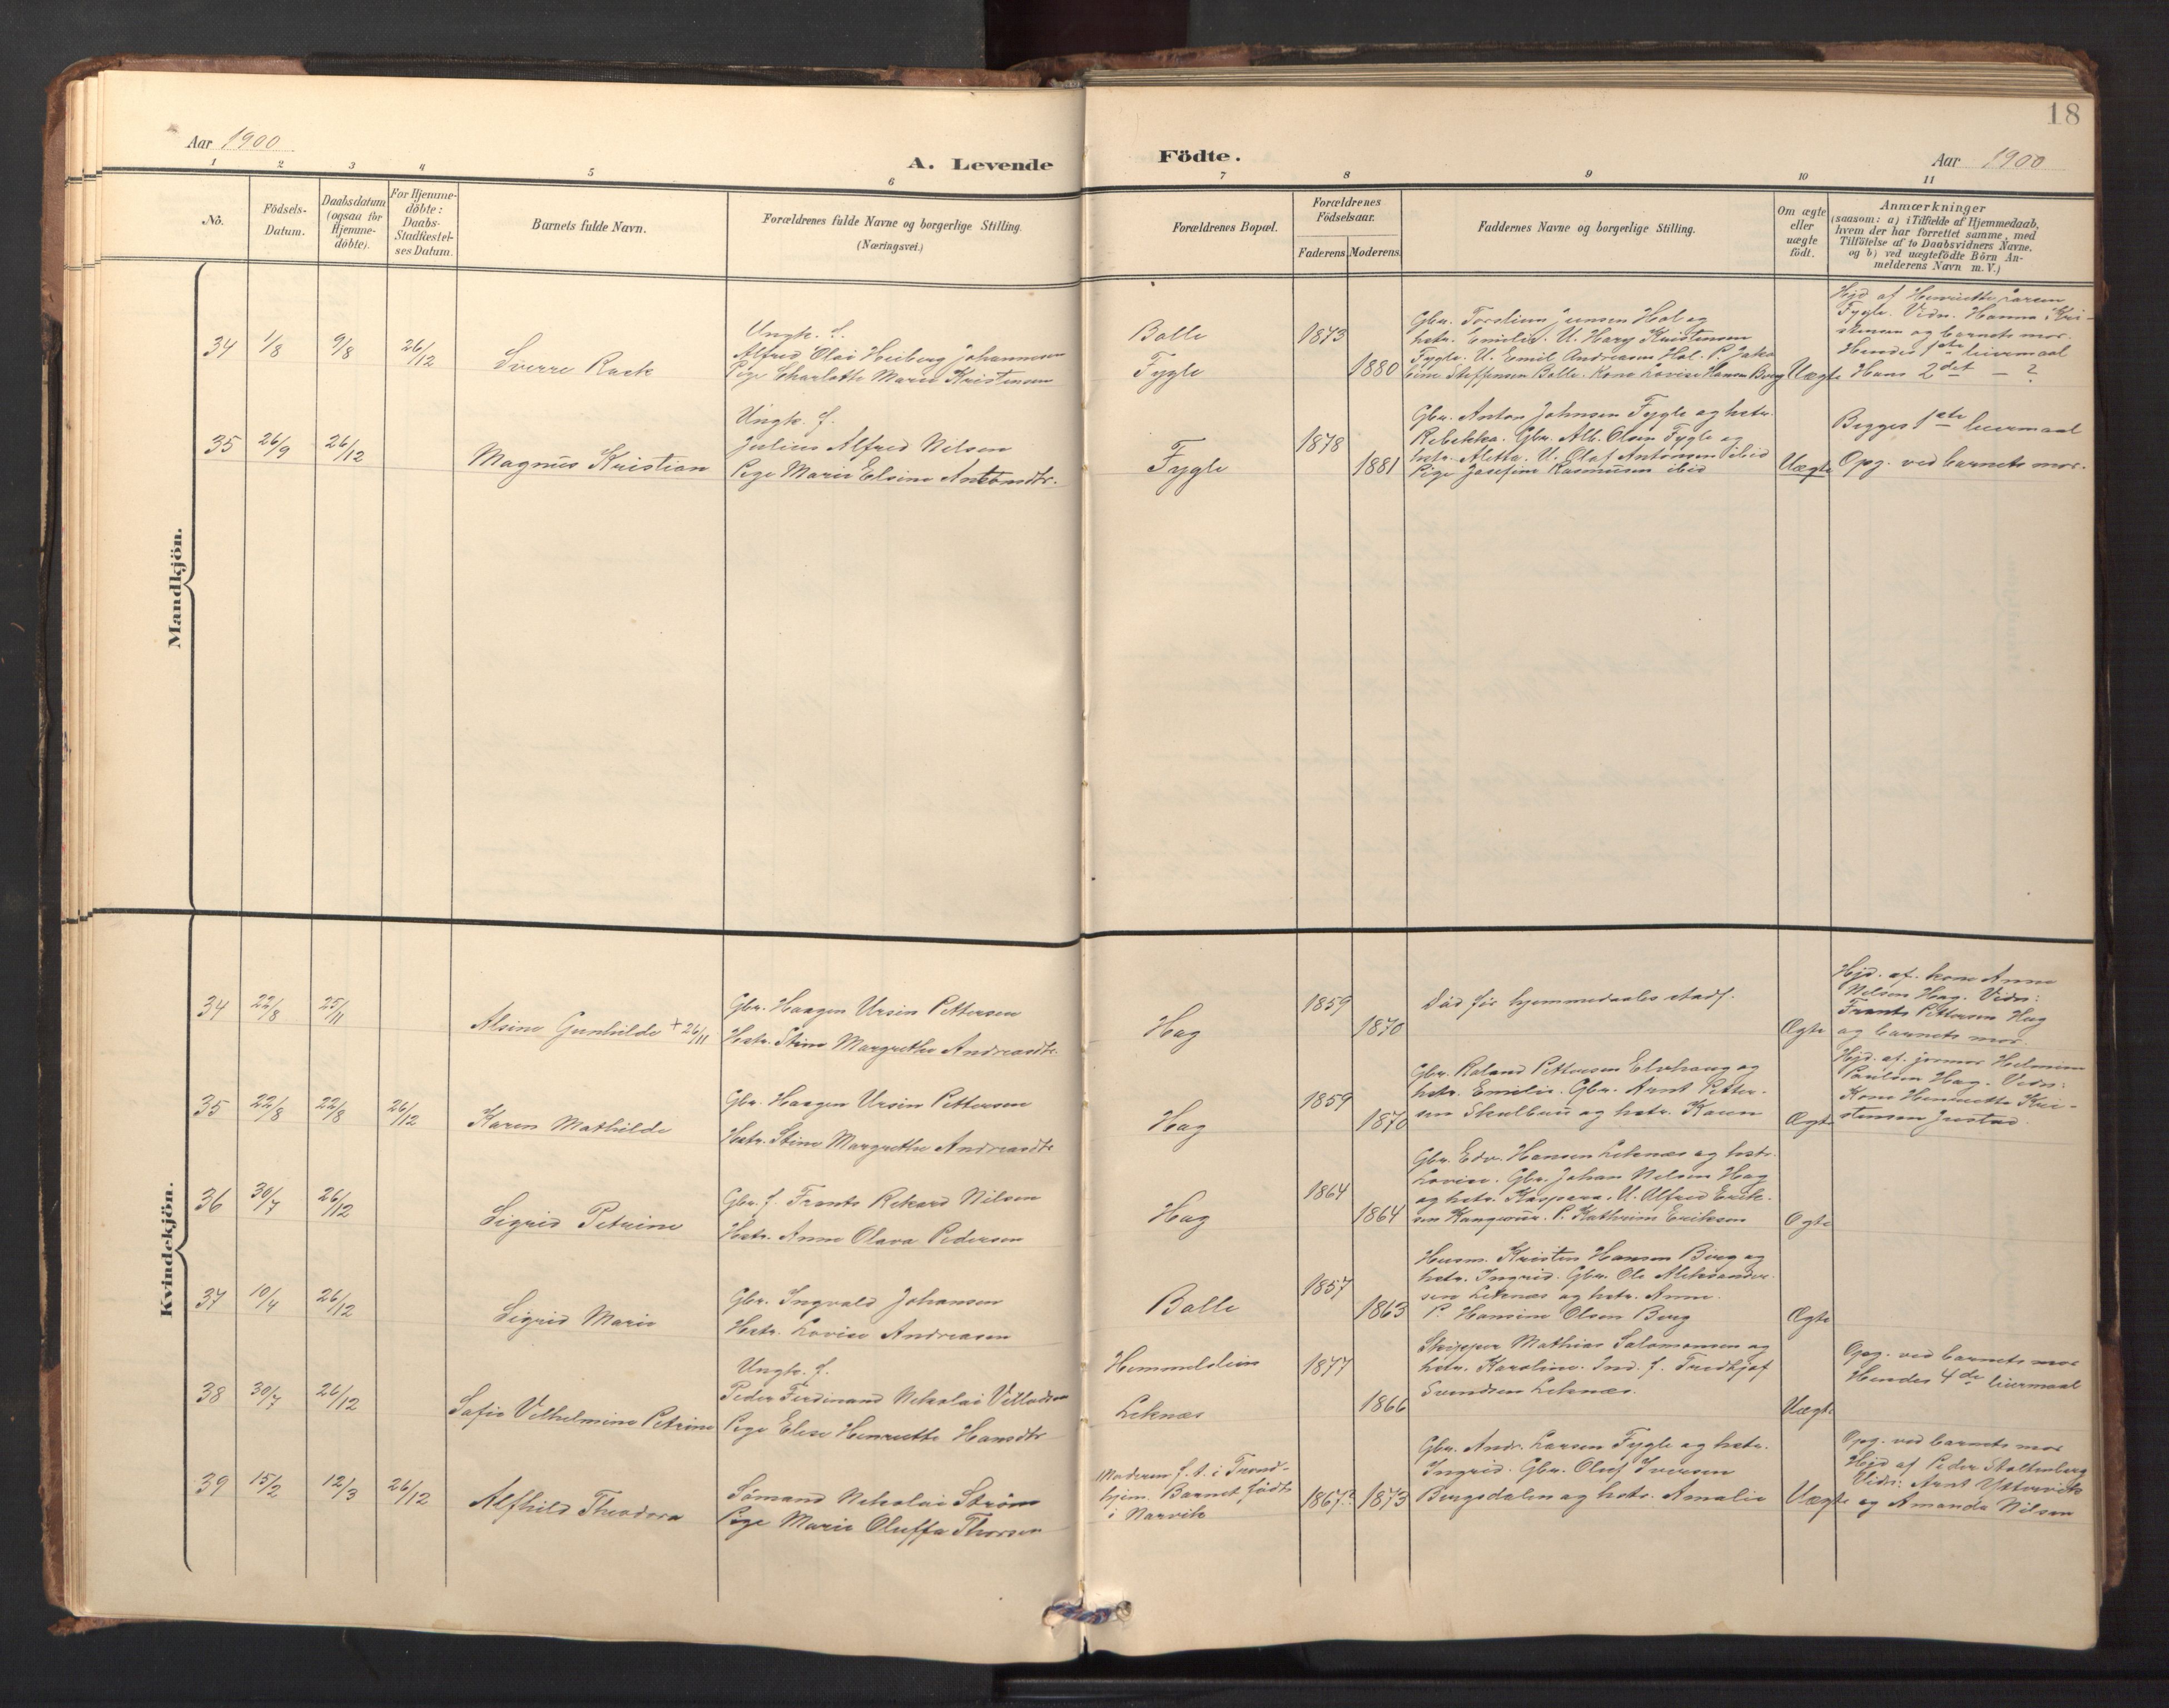 18
Aar 1900
A. Levende
Födte.
Aar 1900
1
2
3
4
5
6
7
8
9
10
11
No.
Födsels-
Datum.
Daabsdatum
(ogsaa for
Hjemme-
döbte).
For Hjemme-
döbte:
Daabs-
Stadfæstel-
ses Datum.
Barnets fulde Navn.
Forældrenes fulde Navne og borgerlige Stilling.
(Næringsvei.)
Forældrenes Bopæl.
Forældrenes
Födselsaar.
Faderens
Moderens
Faddernes Navne og borgerlige Stilling.
Om ægte
eller
uægte
födt.
Anmærkninger
(saasom: a) i Tilfælde af Hjemmedaab,
hvem der har forrettet samme, med
Tilföielse af to Daabsvidners Navne,
og b) ved uægtefödte Börn An-
melderens Navn m. V.)
Mandkjön.
34
1/8
9/8
26/12
Sverre Rack
Ungk. f.
Alfred Olai Heiberg Johannesen
Pige Charlotte Marie Kristensen
Balle
Fygle
1873
1880
Gbr. Torstein Jensen Hol og
hstr. Emilie. U. Harg Kristensen
Fygle. U. Emil Andreasen Hol. P. Jako
bine Steffensen Bolle. Kone Lovise Hansen Borg
Uægte
Hjd af Henriette Larsen
Fygle. Vidn. Hanna Kri-
stensen og barnets mor.
Hendes 1ste leiermaal
Hans 2det — ?
35
26/9
26/12
Magnus Kristian
Ungk. f.
Julius Alfred Nilsen
Pige Marie Elsine Antonsdtr.
Fygle
1878
1881
Gbr. Anton Johnsen Fygle og hstr.
Rebekka. Gbr. Alb. Olsen Fygle og
hstr. Aletta. U. Olaf Antonsen ibid
Pige Josefine Rasmusen ibid
Uægte
Begges 1ste leiermaal
Opg. ved barnets mor.
Kvindekjön.
34
22/8
25/11
Alsine Gunhilde + 26/11
Gbr. Haagen Ursin Pettersen
Hstr. Stine Margrethe Andreasdtr.
Hag
1859
1870
Död før hjemmedaabs stadf.
Ægte
Hjd. af kone Anne
Nilsen Hag. Vidn:
Frants Pettersen Hag
og barnets mor.
35
22/8
22/8
26/12
Karen Mathilde
Gbr. Haagen Ursin Pettersen
Hstr. Stine Margrethe Andreasdtr
Hag
1859
1870
Gbr. Roland Pettersen Elvhaug og
hstr. Emilie. Gbr. Arnt Petter-
sen Skulbru og hstr. Karen
Ægte
Hjd. af jormor Helmine
Paulsen Hag. Vidn:
Kone Henriette Kri-
stensen Justad.
36
30/7
26/12
Sigrid Petrine
Gbr. f. Frants Rikard Nilsen
Hstr. Anne Olava Pedersen
Hag
1864
1864
Gbr. Edv. Hansen Leknæs og hstr.
Lovise. Gbr. Johan Nilsen Hag
og hstr. Kaspara. U. Alfred Erik-
sen Kangerur. P. Kathrine Eriksen
Ægte
37
10/4
26/12
Sigrid Marie
Gbr. Ingvald Johansen
Hstr. Lovise Andreasen
Balle
1857
1863
Husm. Kristen Hansen Borg og
hstr. Ingrid. Gbr. Ole Aleksander-
sen Leknæs og hstr. Anne.
P. Hansine Olsen Borg
Ægte
38
30/7
26/12
Safie Vilhelmine Petrine
Ungk. f.
Peder Ferdinand Nikolai Villadsen
Pige Elise Henriette Hansdtr
Hemmelstein
Leknæs
1877
1866
Skipper Mathias Salomonsen og
hstr. Karoline. Ind. f. Fredthjof
Svendsen Leknæs.
Uægte
Opg. ved barnets mor
Hendes 4de leiermaal
39
15/2
12/3
26/12
Alfhild Theodora
Sömand Nikolai Ström
Pige Marie Oluffa Thorsen
Moderen f. t. i Trond-
hjem. Barnet født
i Narvik
1867?
1873
Gbr. Andr. Larsen Fygle og hstr.
Ingrid. Gbr. Oluf Iversen
Bergsdalen og hstr. Amalie
Uægte
Opg. ved barnets mor
Hjd af Peder Stoltenberg
Vidn: Arnt Yttervik
og Amanda Nilsen